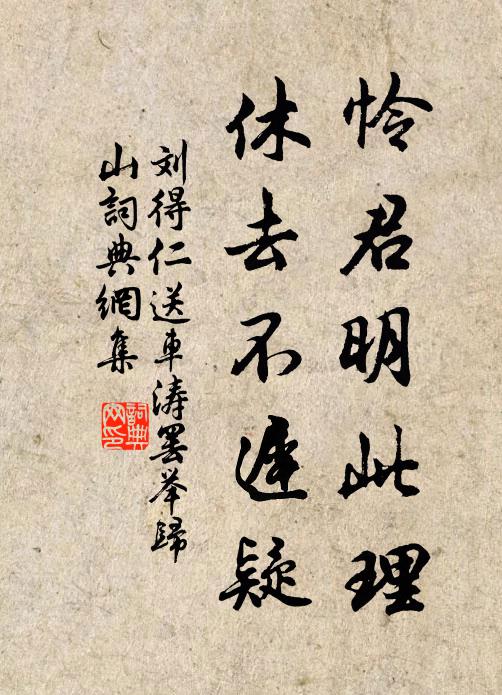 怜君明此理
休去不迟疑
刘得仁送车涛罢举归
山詞典網集
詞典
网印